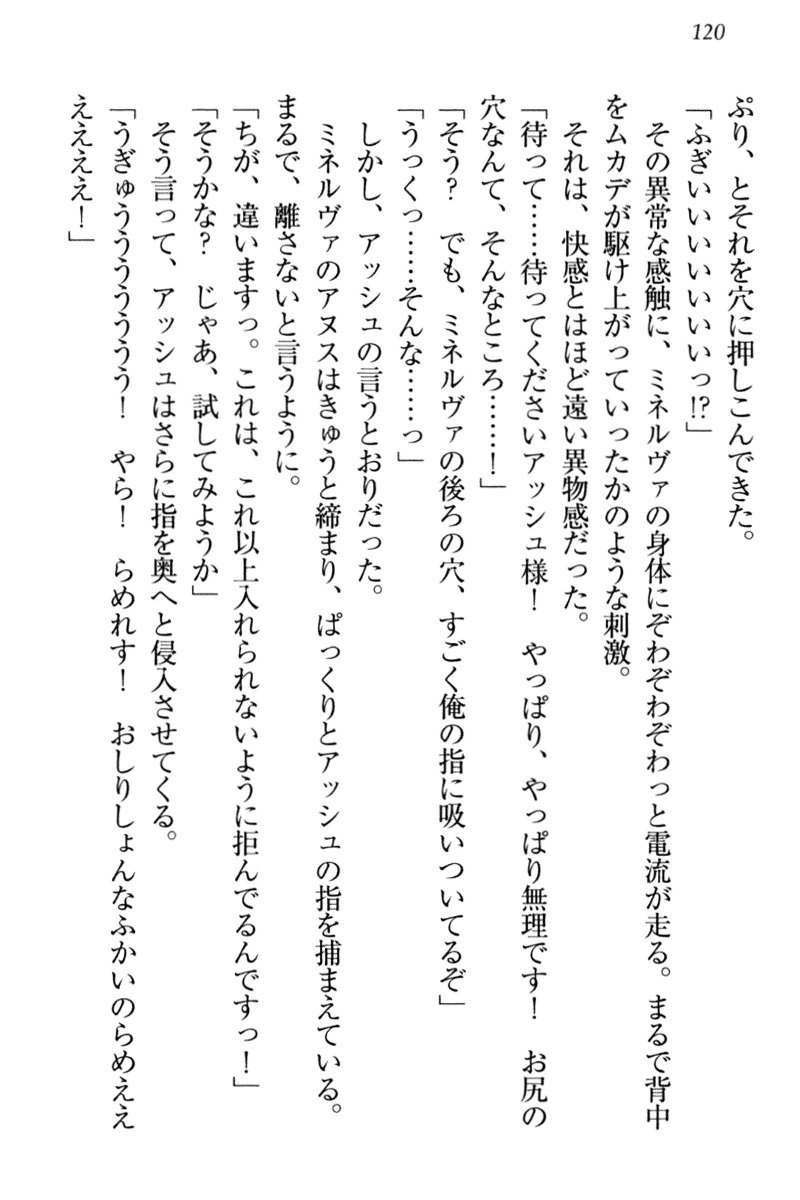 120
ぷり、とそれを穴に押しこんできた。
「ふぎいいいいいいいっ!?」
　その異常な感触に、ミネルヴァの身体にぞわぞわぞわっと電流が走る。まるで背中
をムカデが駆け上がっていったかのような刺激。
　それは、快感とはほど遠い異物感だった。
「待って……待ってくださいアッシュ様！　やっぱり、やっぱり無理です！　お尻の
穴なんて、そんなところ……！」
「そう？　でも、ミネルヴァの後ろの穴、すごく俺の指に吸いついてるぞ」
「うっくっ……そんな……っ」
　しかし、アッシュの言うとおりだった。
　ミネルヴァのアヌスはきゅうと締まり、ぱっくりとアッシュの指を捕まえている。
まるで、離さないと言うように。
「ちが、違いますっ。これは、これ以上入れられないように拒んでるんですっ！」
「そうかな？　じゃあ、試してみようか」
　そう言って、アッシュはさらに指を奥へと侵入させてくる。
「うぎゅうううううう！　やら！　らめれす！　おしりしょんなふかいのらめええ
ええええ！」